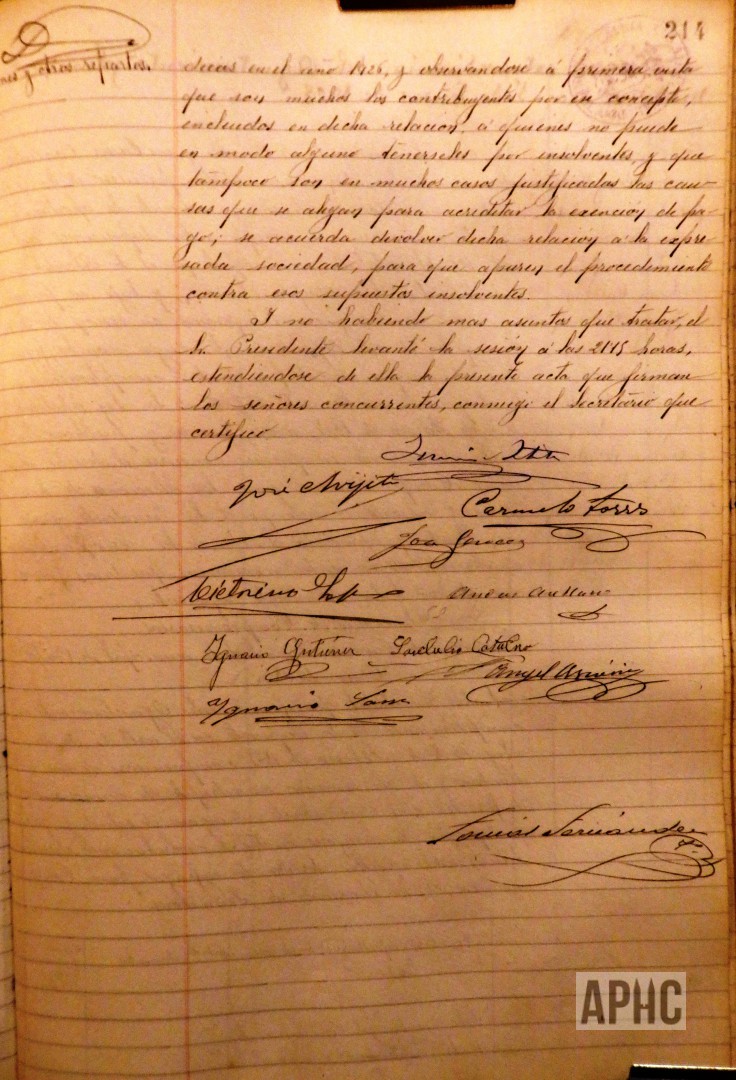 214
nes y otros repartos.
decas en el año 1926, y observandose á primera vista
que son muchos los contribuyentes por ese concepto,
incluidos en dicha relacion, á quienes no puede
en modo alguno tenerseles por insolventes, y que
tampoco son en muchos casos justificadas las cau-
sas que se alegan para acreditar la exención de pa-
go; se acuerda devolver dicha relacion á la expre-
sada sociedad, para que apuren el procedimiento
contra esos supuestos insolventes.
Y no habiendo mas asuntos que tratar, el
Sr. Presidente levantó la sesión á las 21'15 horas,
extendiendose de ella la presente acta que firman
los señores concurrentes, conmigo el Secretario que
certifico
José
Carmelo Torres
Victorino
Ignacio Gutierrez
Angel
Ignacio
Tomás Fernández
APHC